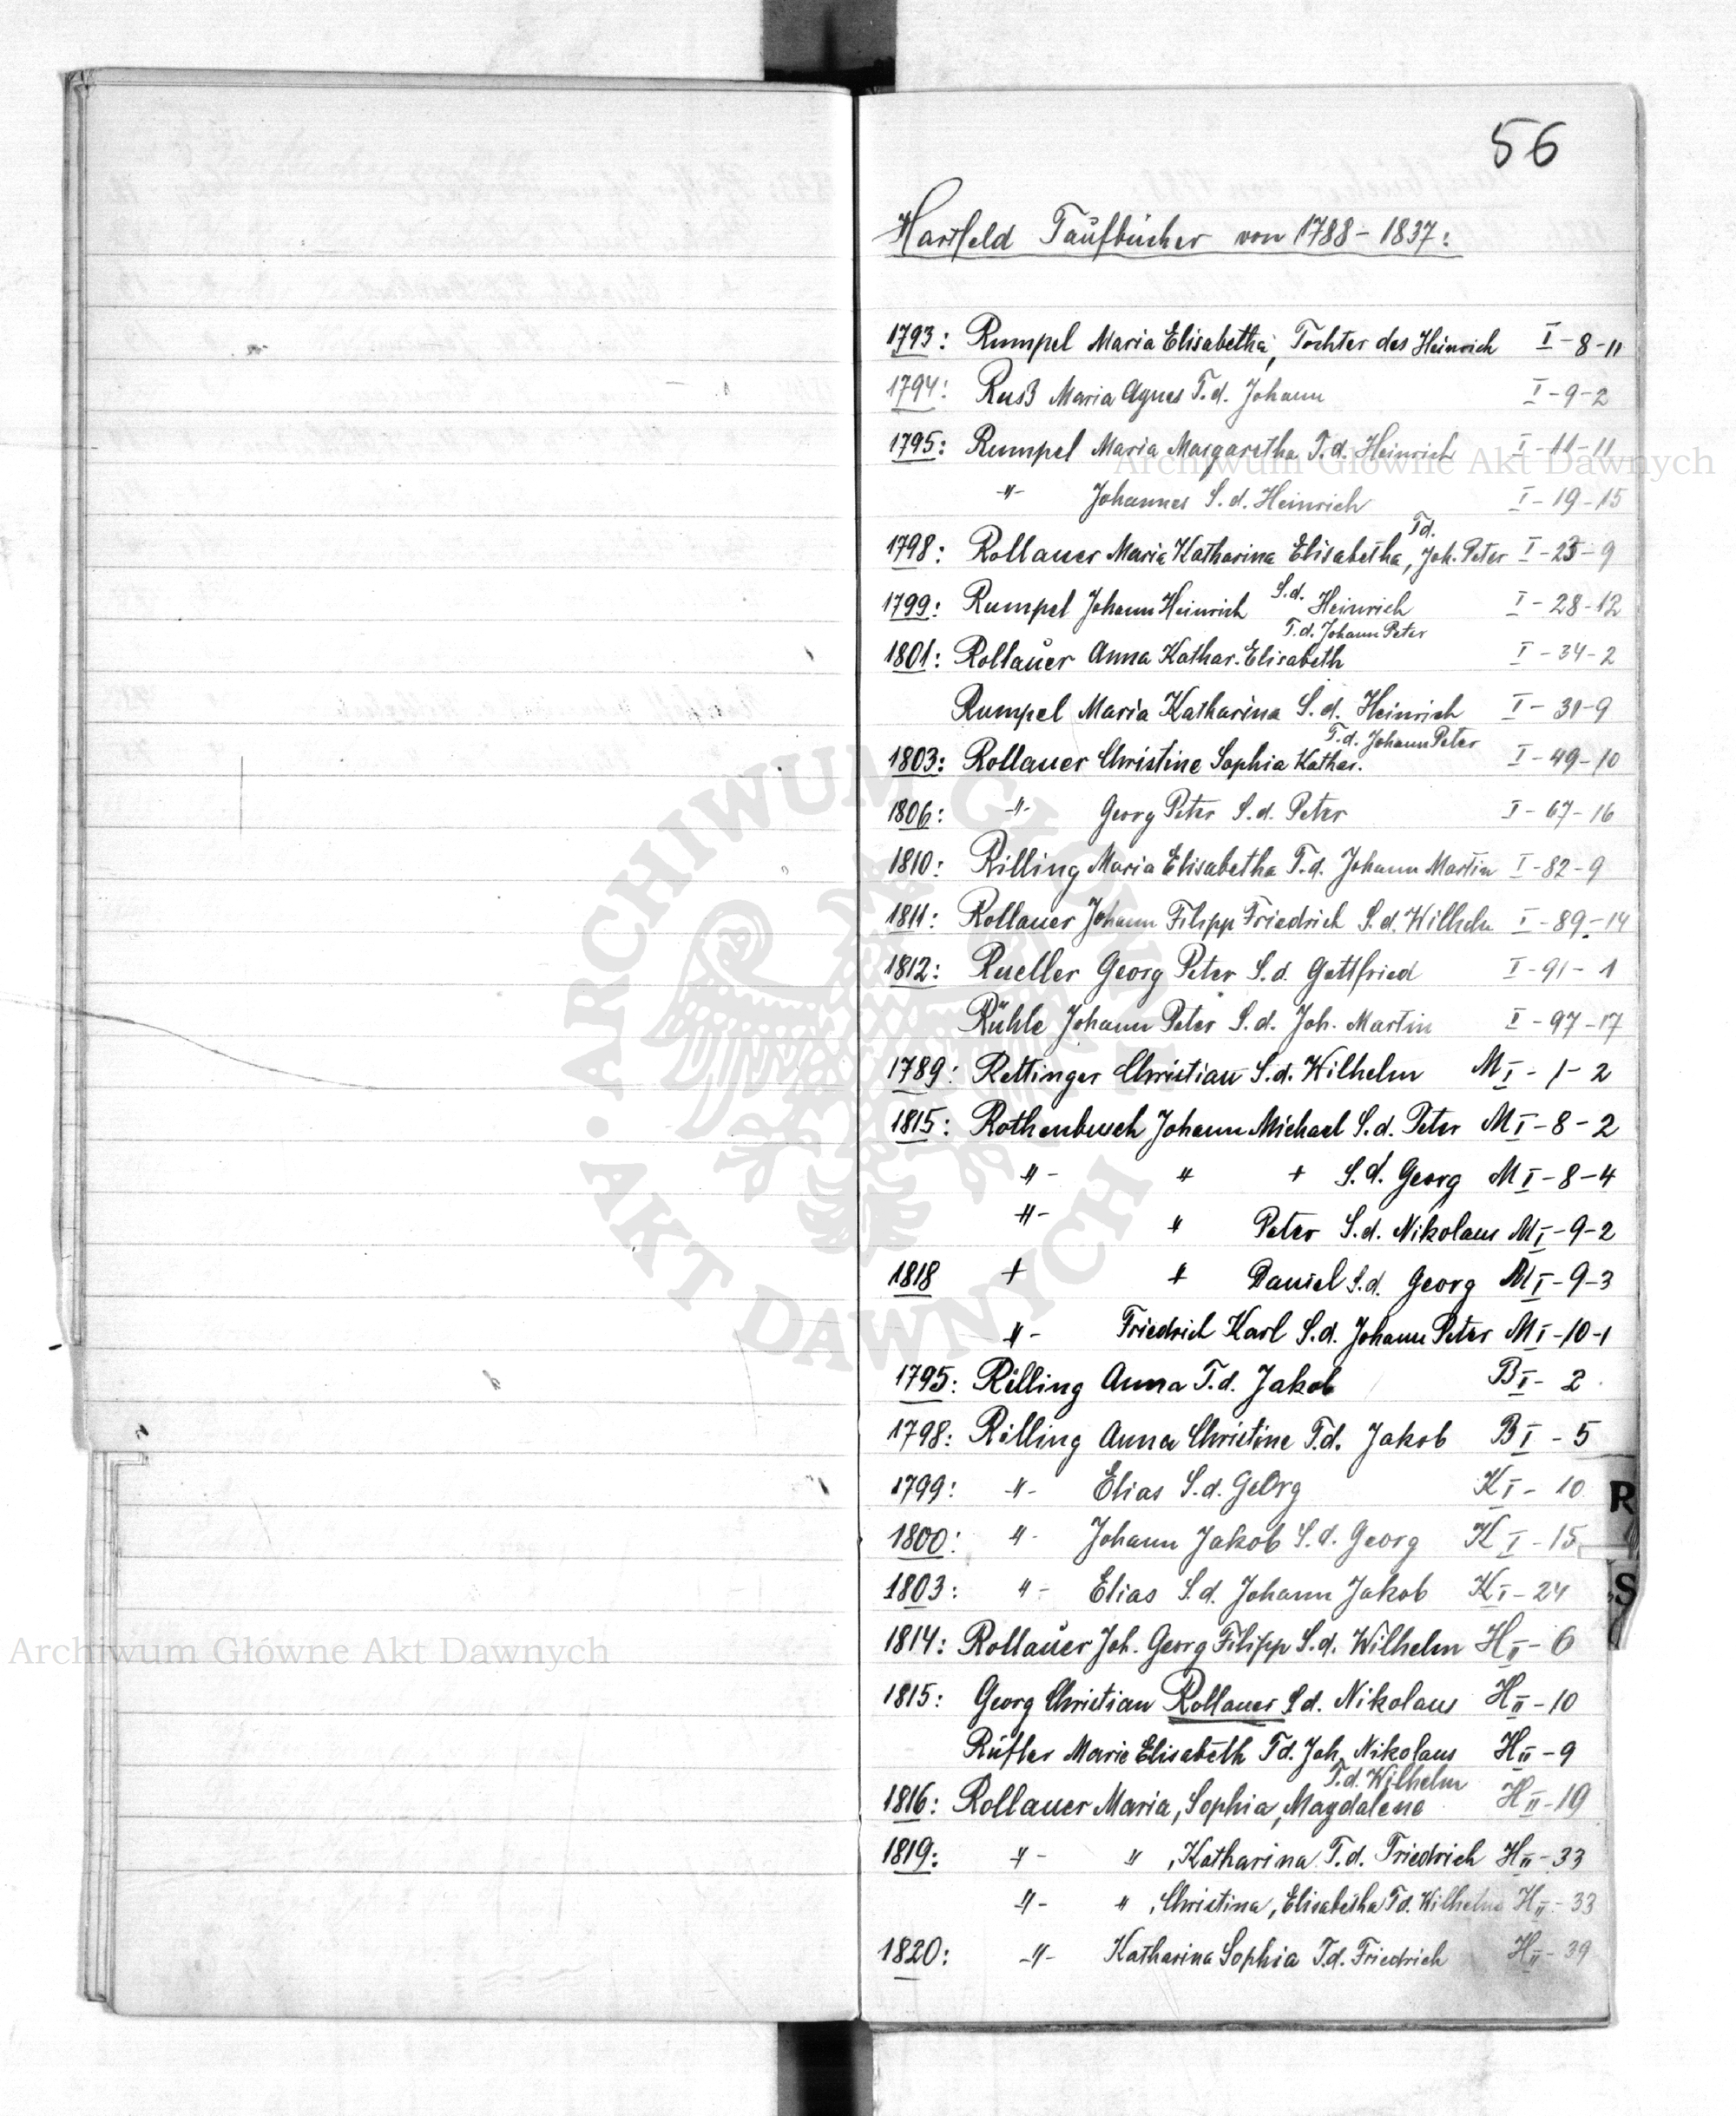 56
Hartfeld Taufbücher von 1788 - 1837:
1793: Rumpel Maria Elisabetha, Tochter des Heinrich I-8-11
1794: Ruß Maria Agnes T.d. Johann I-9-2
1795: Rumpel Maria Margaretha T.d. Heinrich I-11-11
-"- Johannes S.d. Heinrich I-19-15
1798: Rollauer Maria Katharina Elisabetha, T.d. Joh. Peter I-25-9
1799: Rumpel Johann Heinrich S.d. Heinrich I-28-12
1801: Rollauer Anna Kathar. Elisabeth T.d. Johann Peter I-34-2
Rumpel Maria Katharina S.d. Heinrich I-31-9
1803: Rollauer Christine Sophia Kathar. T.d. Johann Peter I-49-10
1806: -"- Georg Peter S.d. Peter I-67-16
1810: Rilling Maria Elisabetha T.d. Johann Martin I-82-9
1811: Rollauer Johann Filipp Friedrich S.d. Wilhelm I-89-14
1812: Rueller Georg Peter S.d. Gottfried I-91-1
Rühle Johann Peter S.d. Joh. Martin I-97-17
1789: Rettinger Christian S.d. Wilhelm M I-1-2
1815: Rothenbusch Johann Michael S.d. Peter M I-8-2
"- " + S.d. Georg M I-8-4
"- " Peter S.d. Nikolaus M I-9-2
1818 + " Daniel S.d. Georg M I-9-3
"- Friedrich Karl S.d. Johann Peter M I-10-1
1795: Rilling Anna T.d. Jakob B I-2
1798: Rilling Anna Christine T.d. Jakob B I-5
1799: -"- Elias S.d. Georg K I-10
1800: "- Johann Jakob S.d. Georg K I-15
1803: "- Elias S.d. Johann Jakob K I-24
1814: Rollauer Joh. Georg Filipp S.d. Wilhelm H II-6
1815: Georg Christian Rollauer S.d. Nikolaus H II-10
Rüfler Marie Elisabeth T.d. Joh. Nikolaus H II-9
1816: Rollauer Maria, Sophia, Magdalene T.d. Wilhelm H II-19
1819: "- " , Katharina T.d. Friedrich H II-33
-"- " , Christina, Elisabetha T.d. Wilhelm H II-33
1820: -"- Katharina Sophia T.d. Friedrich H II-39
R
S
Archiwum Główne Akt Dawnych
Archiwum Główne Akt Dawnych
ARCHIWUM GŁÓWNE
AKT DAWNYCH